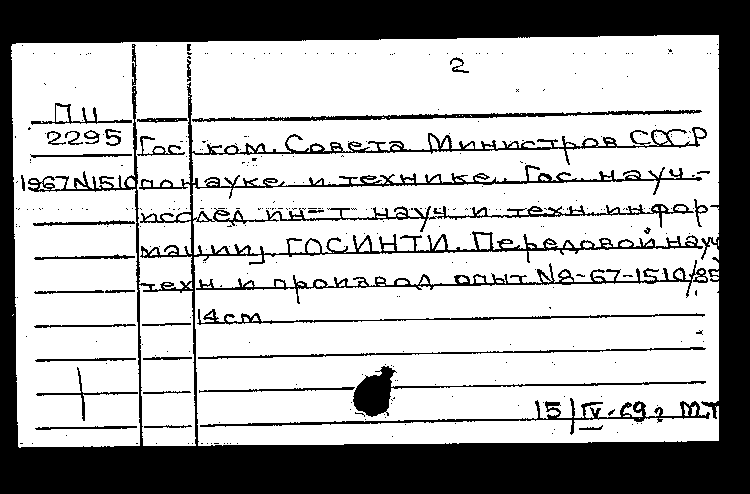 2
П II
2295 Гос. ком. Совета Министров СССР
1967 N1510 по науке и технике. Гос. науч.-
исслед ин-т науч. и техн. инфор-
мации, ГОСИНТИ. Передовой науч
техн. и производ опыт N8-67-1510/85
14 см
15/IV-69 г М.Т